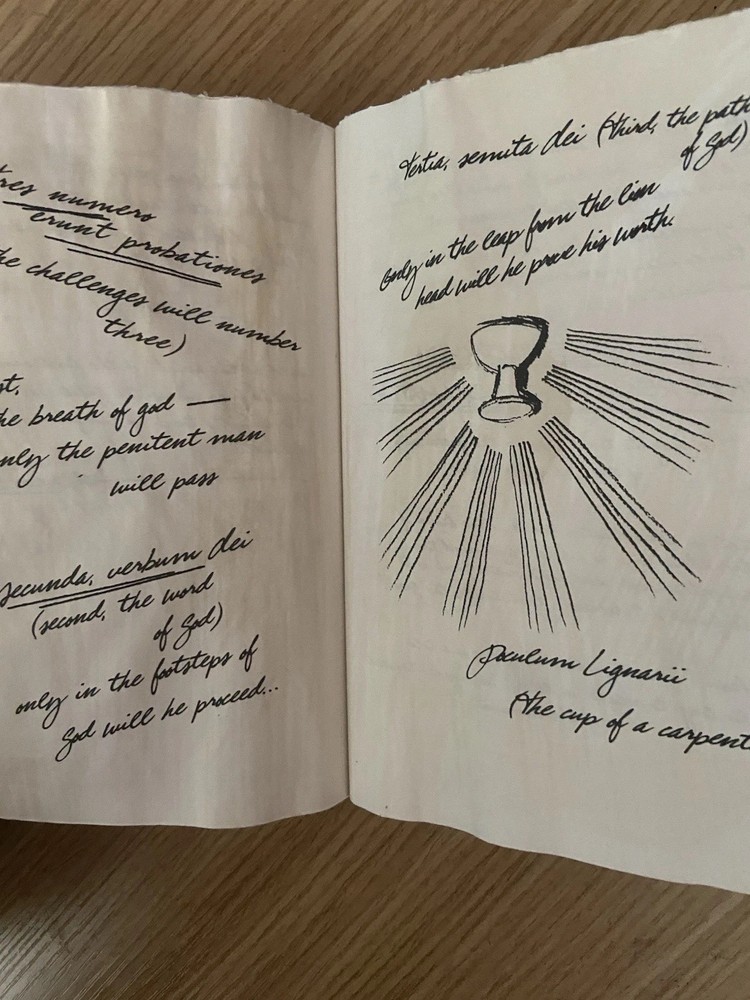 tres numero
erunt probationes
he challenges will number
three)
st,
he breath of god —
nly the penitent man
will pass
secunda, verbum dei
(second, the word
of God)
only in the footsteps of
God will he proceed...
tertia, semita dei (third, the path
of God)
Only in the leap from the lion
head will he prove his worth.
Poculum Lignarii
(the cup of a carpent